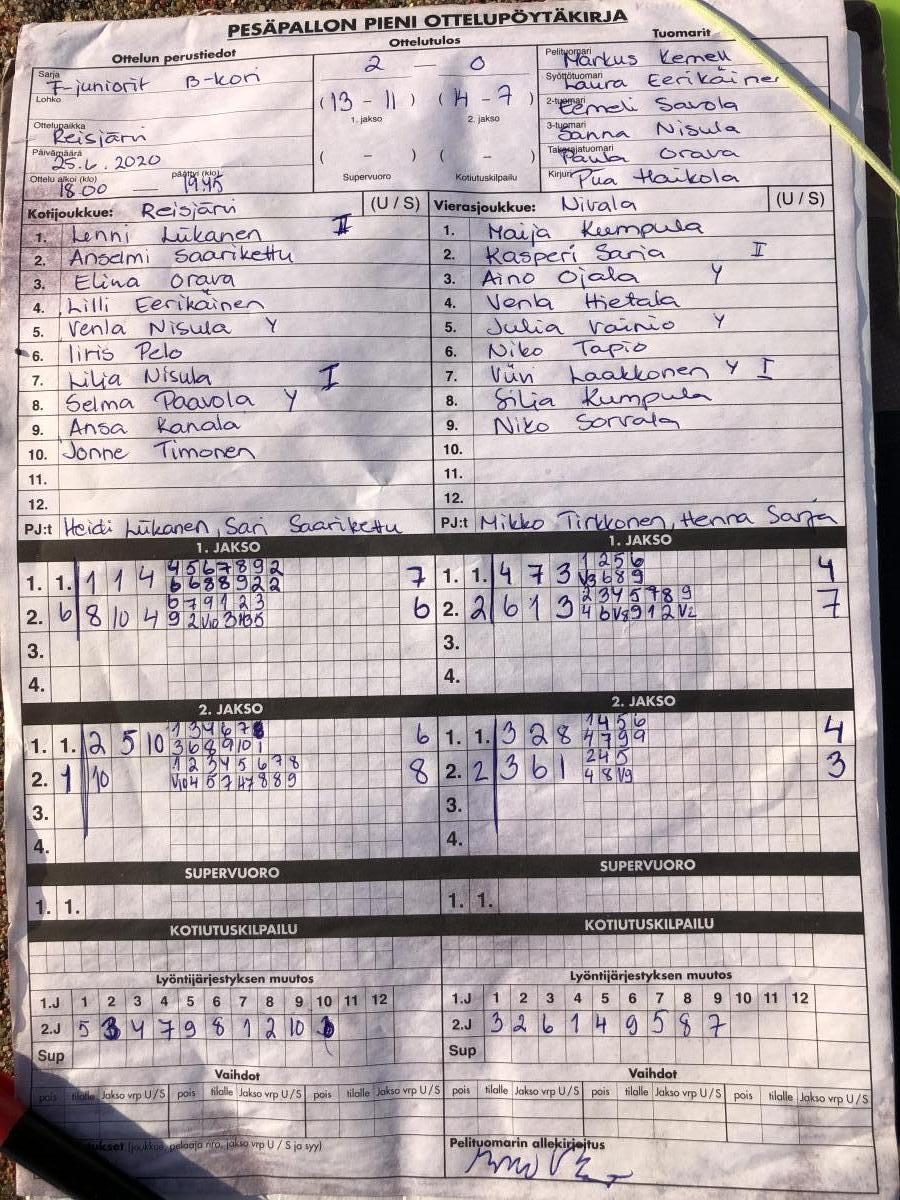 PESÄPALLON PIENI OTTELUPÖYTÄKIRJA
Ottelun perustiedot
Sarja F-juniorit B-kori
Lohko
Ottelupaikka Reisjärvi
Päivämäärä 25.6.2020
Ottelu alkoi (klo) 18.00 — päättyi (klo) 19.45
Ottelutulos
2 — 0
(13 - 11) (14 - 7)
1. jakso 2. jakso
( - ) ( - )
Supervuoro Kotiutuskilpailu
Tuomarit
Pelituomari Markus Kemell
Syöttötuomari Laura Eerikäinen
2-tuomari Eemeli Savola
3-tuomari Sanna Nisula
Takarajatuomari Paula Orava
Kirjuri Pua Haikola
Kotijoukkue: Reisjärvi (U / S)
1. Lenni Liikanen II
2. Anselmi Saarikettu
3. Elina Orava
4. Lilli Eerikäinen
5. Venla Nisula Y
6. Iiris Pelo
7. Lilja Nisula I
8. Selma Paavola Y
9. Ansa Kanala
10. Jonne Timonen
11.
12.
PJ:t Heidi Liikanen, Sari Saarikettu
Vierasjoukkue: Nivala (U / S)
1. Maija Kumpula
2. Kasperi Sarja II
3. Aino Ojala Y
4. Venla Hietala
5. Julia Vainio Y
6. Niko Tapio
7. Viivi Laakkonen Y I
8. Silja Kumpula
9. Niko Sorvala
10.
11.
12.
PJ:t Mikko Tirkkonen, Henna Sarja
1. JAKSO
1. 1. 1 1 4 4 5 6 7 8 9 2 7
6 6 8 8 9 2 2
2. 6 8 10 4 6 7 9 1 2 3 6
9 2 V10 3
3.
4.
1. JAKSO
1. 1. 4 7 3 1 2 5 6 4
V3 6 8 9
2. 2 6 1 3 2 3 4 5 7 8 9 7
4 6 V8 9 1 2 V2
3.
4.
2. JAKSO
1. 1. 2 5 10 1 3 4 6 7 6
3 6 8 9 10 1
2. 1 10 1 2 3 4 5 6 7 8 8
V10 4 5 7 8 8 9
3.
4.
2. JAKSO
1. 1. 3 2 8 1 4 5 6 4
4 7 9 9
2. 2 3 6 1 2 4 5 3
4 8 V9
3.
4.
SUPERVUORO
1. 1.
SUPERVUORO
1. 1.
KOTIUTUSKILPAILU
KOTIUTUSKILPAILU
Lyöntijärjestyksen muutos
1.J 1 2 3 4 5 6 7 8 9 10 11 12
2.J 5 3 4 7 9 8 1 2 10
Sup
Lyöntijärjestyksen muutos
1.J 1 2 3 4 5 6 7 8 9 10 11 12
2.J 3 2 6 1 4 9 5 8 7
Sup
Vaihdot
pois tilalle Jakso vrp U / S pois tilalle Jakso vrp U / S pois tilalle Jakso vrp U / S
Vaihdot
pois tilalle Jakso vrp U / S pois tilalle Jakso vrp U / S pois tilalle Jakso vrp U / S
(joukkue, pelaaja nro, jakso vrp U / S ja syy)
Pelituomarin allekirjoitus